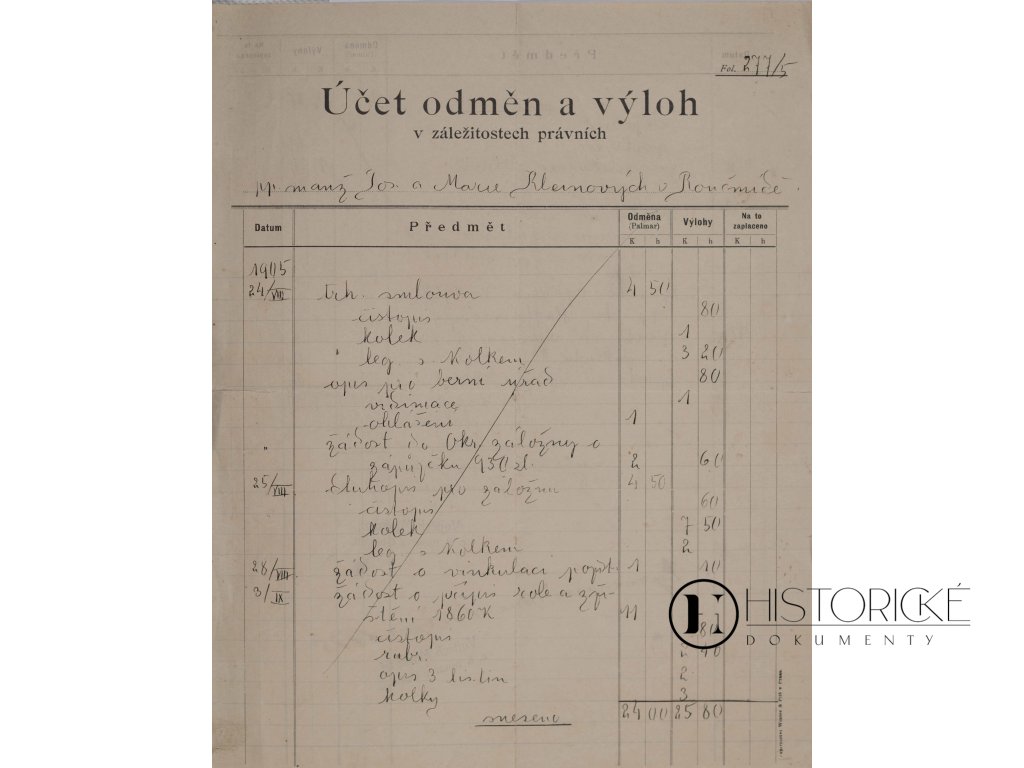 Fol. 277/5
Účet odměn a výloh
v záležitostech právních
pp. manž. Jos. a Marie Kleinových v
Datum Předmět Odměna (Palmar) Výlohy Na to zaplaceno
K h K h K h
1905
24/VIII trh. smlouva 4 50
čistopis 80
kolek 1
" leg. s kolkem 3 20
opis pro berní úřad 80
vidimace 1
ohlášení 1
" žádost do Okr. záložny o
zápůjčku 930 zl. 2 60
25/VIII Dluhopis pro záložnu 4 50
čistopis 60
kolek 7 50
leg. s kolkem 2
28/VIII žádost o vinkulaci pojist. 1 10
3/IX žádost o přípis role a zji-
štění 1860 K 11
čistopis 80
rubr. 40
opis 3 listin 2
kolky 3
sneseno 24 00 25 80
HISTORICKÉ
DOKUMENTY